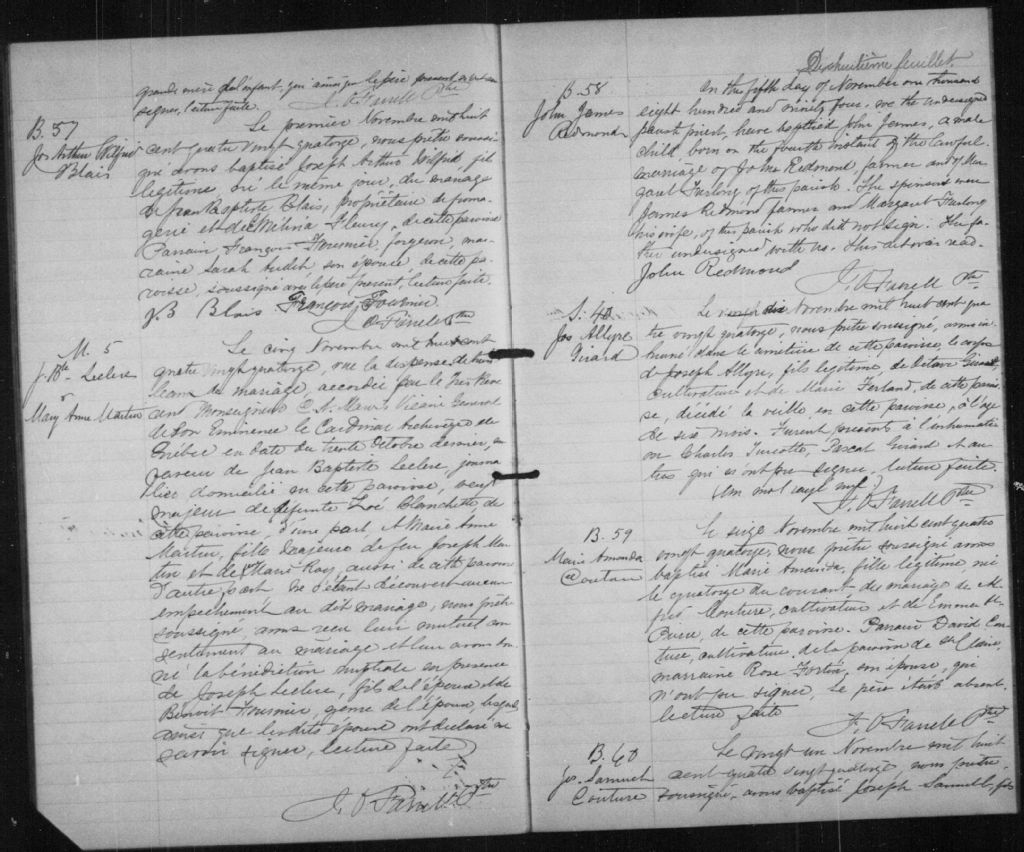 grand'mère de l'enfant, qui ainsi que le père présent
signer, lecture faite.
J. O'Farrell Ptre
B. 57
Jos Arthur Wilfrid
Blais
Le premier Novembre mil huit
cent quatre vingt quatorze, nous prêtre soussi-
gné avons baptisé Joseph Arthur Wilfrid fils
legitime né le même jour, du mariage
de Jean Baptiste Blais, propriétaire de froma-
gerie et de Mélina Fleury, de cette paroisse
Parrain François Fournier, forgeron, mar-
raine Sarah son épouse de cette pa-
roisse, soussigné avec le père présent, lecture faite.
J B Blais François Fournier
J. O'Farrell Ptre
M. 5
J. Bte Leclerc
&
Mary Anne Martin
Le cinq Novembre mil huit cent
quatre vingt quatorze, vu la dispense de trois
bans de mariage, accordée par le Très Réve
rend Monseigneur C. A. Marois Vicaire General
de Son Eminence le Cardinal Archevêque de
Québec en date du trente Octobre dernier, en
faveur de Jean Baptiste Leclerc, journa
lier domicilié en cette paroisse, veuf
majeur de défunte Zoé Blanchette de
cette paroisse, d'une part, et Marie Anne
Martin, fille majeure de feu Joseph Mar-
tin et de Marie Roy, aussi de cette paroisse
d'autre part ne s'étant découvert aucun
empêchement au dit mariage, nous prêtre
soussigné, avons reçu leur mutuel con
sentement au mariage et leur avons don-
né la bénédiction nuptiale en presence
de Joseph Leclerc, fils de l'époux et de
Benoit Fournier, de l'époux, lesquels
ainsi que les dits époux ont declaré ne
savoir signer, lecture faite
J. O'Farrell Ptre
Dixhuitième feuillet.
B. 58
John James
Redmond
On the fifth day of November one thousand
eight hundred and ninety four, we the undersigned
parish priest, have baptised John James, a male
child, born on the fourth instant of the lawful
marriage of John Redmond, farmer and of Mar-
garet Furlong of this parish. The sponsors were
James Redmond farmer and Margaret Furlong
his wife, of this parish who did not sign. The fa-
ther undersigned with us. This det was read.
John Redmond
J. O'Farrell Ptre
S. 40
Jos Allyre
Girard
Le dix Novembre mil huit cent qua
tre vingt quatorze, nous prêtre soussigné, avons in-
humé dans le cimetière de cette paroisse, le corps
de Joseph Allyre, fils legitime, de Octave Girard
cultivateur et de Marie Ferland, de cette parois-
se, décédé la veille en cette paroisse, à l'age
de six mois. Furent présents à l'inhumation
Charles Turcotte, Pascal Girard et au-
tres qui n'ont pu signer, lecture faite.
Un mot rayé nul
J. O'Farrell Ptre
B. 59
Marie Amanda
Couture
Le seize Novembre mil huit cent quatre
vingt quatorze, nous prêtre soussigné avons
baptisé Marie Amanda, fille legitime, née
le quatorze du courant du mariage de
Couture, cultivateur et de Emma St
Pierre, de cette paroisse. Parrain David Cou-
ture, cultivateur de la paroisse de Ste Claire,
marraine Rose Fortin, son épouse, qui
n'ont pu signer, le père étant absent.
lecture faite
J. O'Farrell Ptre
B. 60
Jos. Samuel
Couture
Le vingt un Novembre mil huit
cent quatre vingt quatorze nous prêtre
soussigné, avons baptisé Joseph Samuel, fils